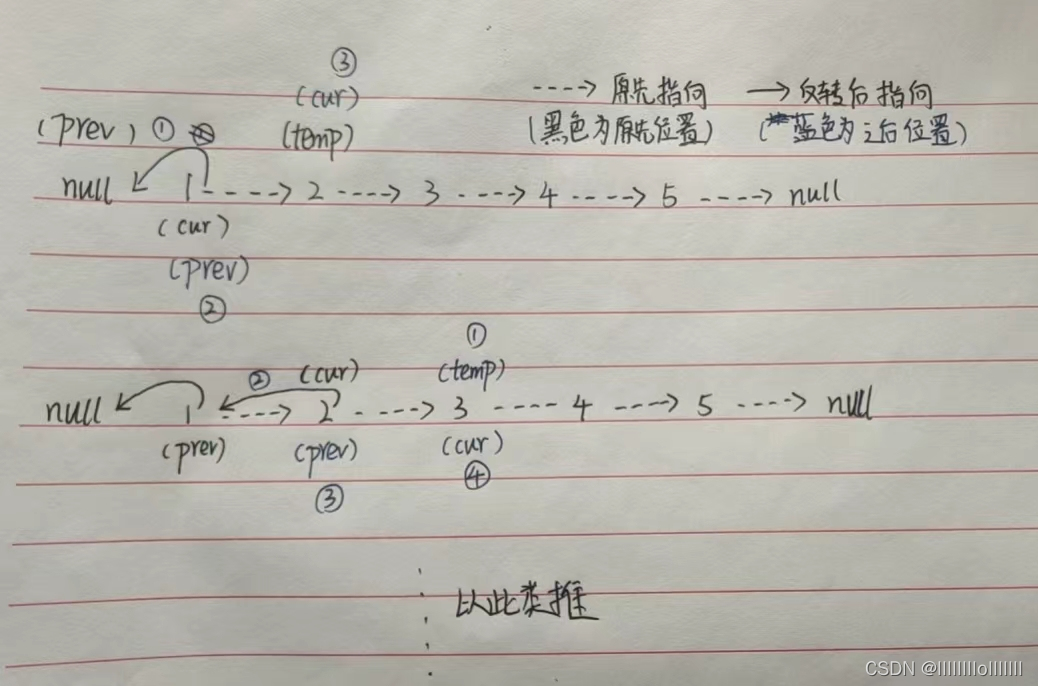 ③
(cur)
----> 原先指向 → 反转后指向
(prev) ① (temp) (黑色为原先位置) (蓝色为之后位置)
null 1 ----> 2 ----> 3 ----> 4 ----> 5 ----> null
(cur)
(prev)
②
①
② (cur) (temp)
null 1 ----> 2 ----> 3 ---- 4 ----> 5 ----> null
(prev) (prev) (cur)
③ ④
以此类推
CSDN @lllllllolllllll